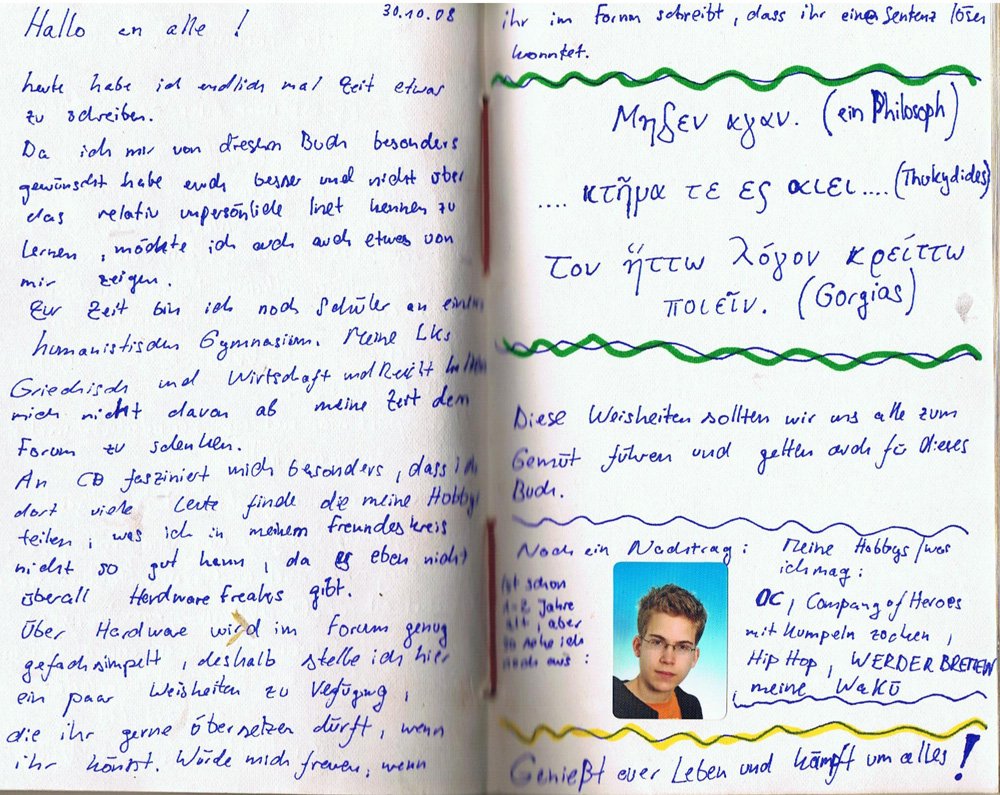 30.10.08
Hallo an alle !
heute habe ich endlich mal Zeit etwas
zu schreiben.
Da ich mir von diesem Buch besonders
gewünscht habe euch besser und nicht über
das relativ unpersönliche Inet kennen zu
lernen, möchte ich auch auch etwas von
mir zeigen.
Zur Zeit bin ich noch Schüler an einem
humanistischen Gymnasium. Meine LKs
Griechisch und Wirtschaft und Recht halten
mich nicht davon ab meine Zeit dem
Forum zu schenken.
An CB fasziniert mich besonders, dass ich
dort viele Leute finde die meine Hobbys
teilen, was ich in meinem Freundeskreis
nicht so gut kann, da es eben nicht
überall Hardwarefreaks gibt.
Über Hardware wird im Forum genug
gefachsimpelt, deshalb stelle ich hier
ein paar Weisheiten zu Verfügung,
die ihr gerne Übersetzen dürft, wenn
ihr könnt. Würde mich freuen, wenn
ihr im Forum schreibt, dass ihr eine Sentenz lösen
konntet.
Μηδεν αγαν. (ein Philosoph)
.... κτῆμα τε ες αιει .... (Thukydides)
τον ἥττω λόγον κρείττω
ποιεῖν. (Gorgias)
Diese Weisheiten sollten wir uns alle zum
Gemüt führen und gelten auch für dieses
Buch.
Noch ein Nachtrag:
Ist schon
1-2 Jahre
alt, aber
so sehe ich
noch aus:
Meine Hobbys/was
ich mag:
OC, Company of Heroes
mit Kumpeln zocken,
Hip Hop, WERDER BREMEN
, meine WaKü
Genießt euer Leben und kämpft um alles!